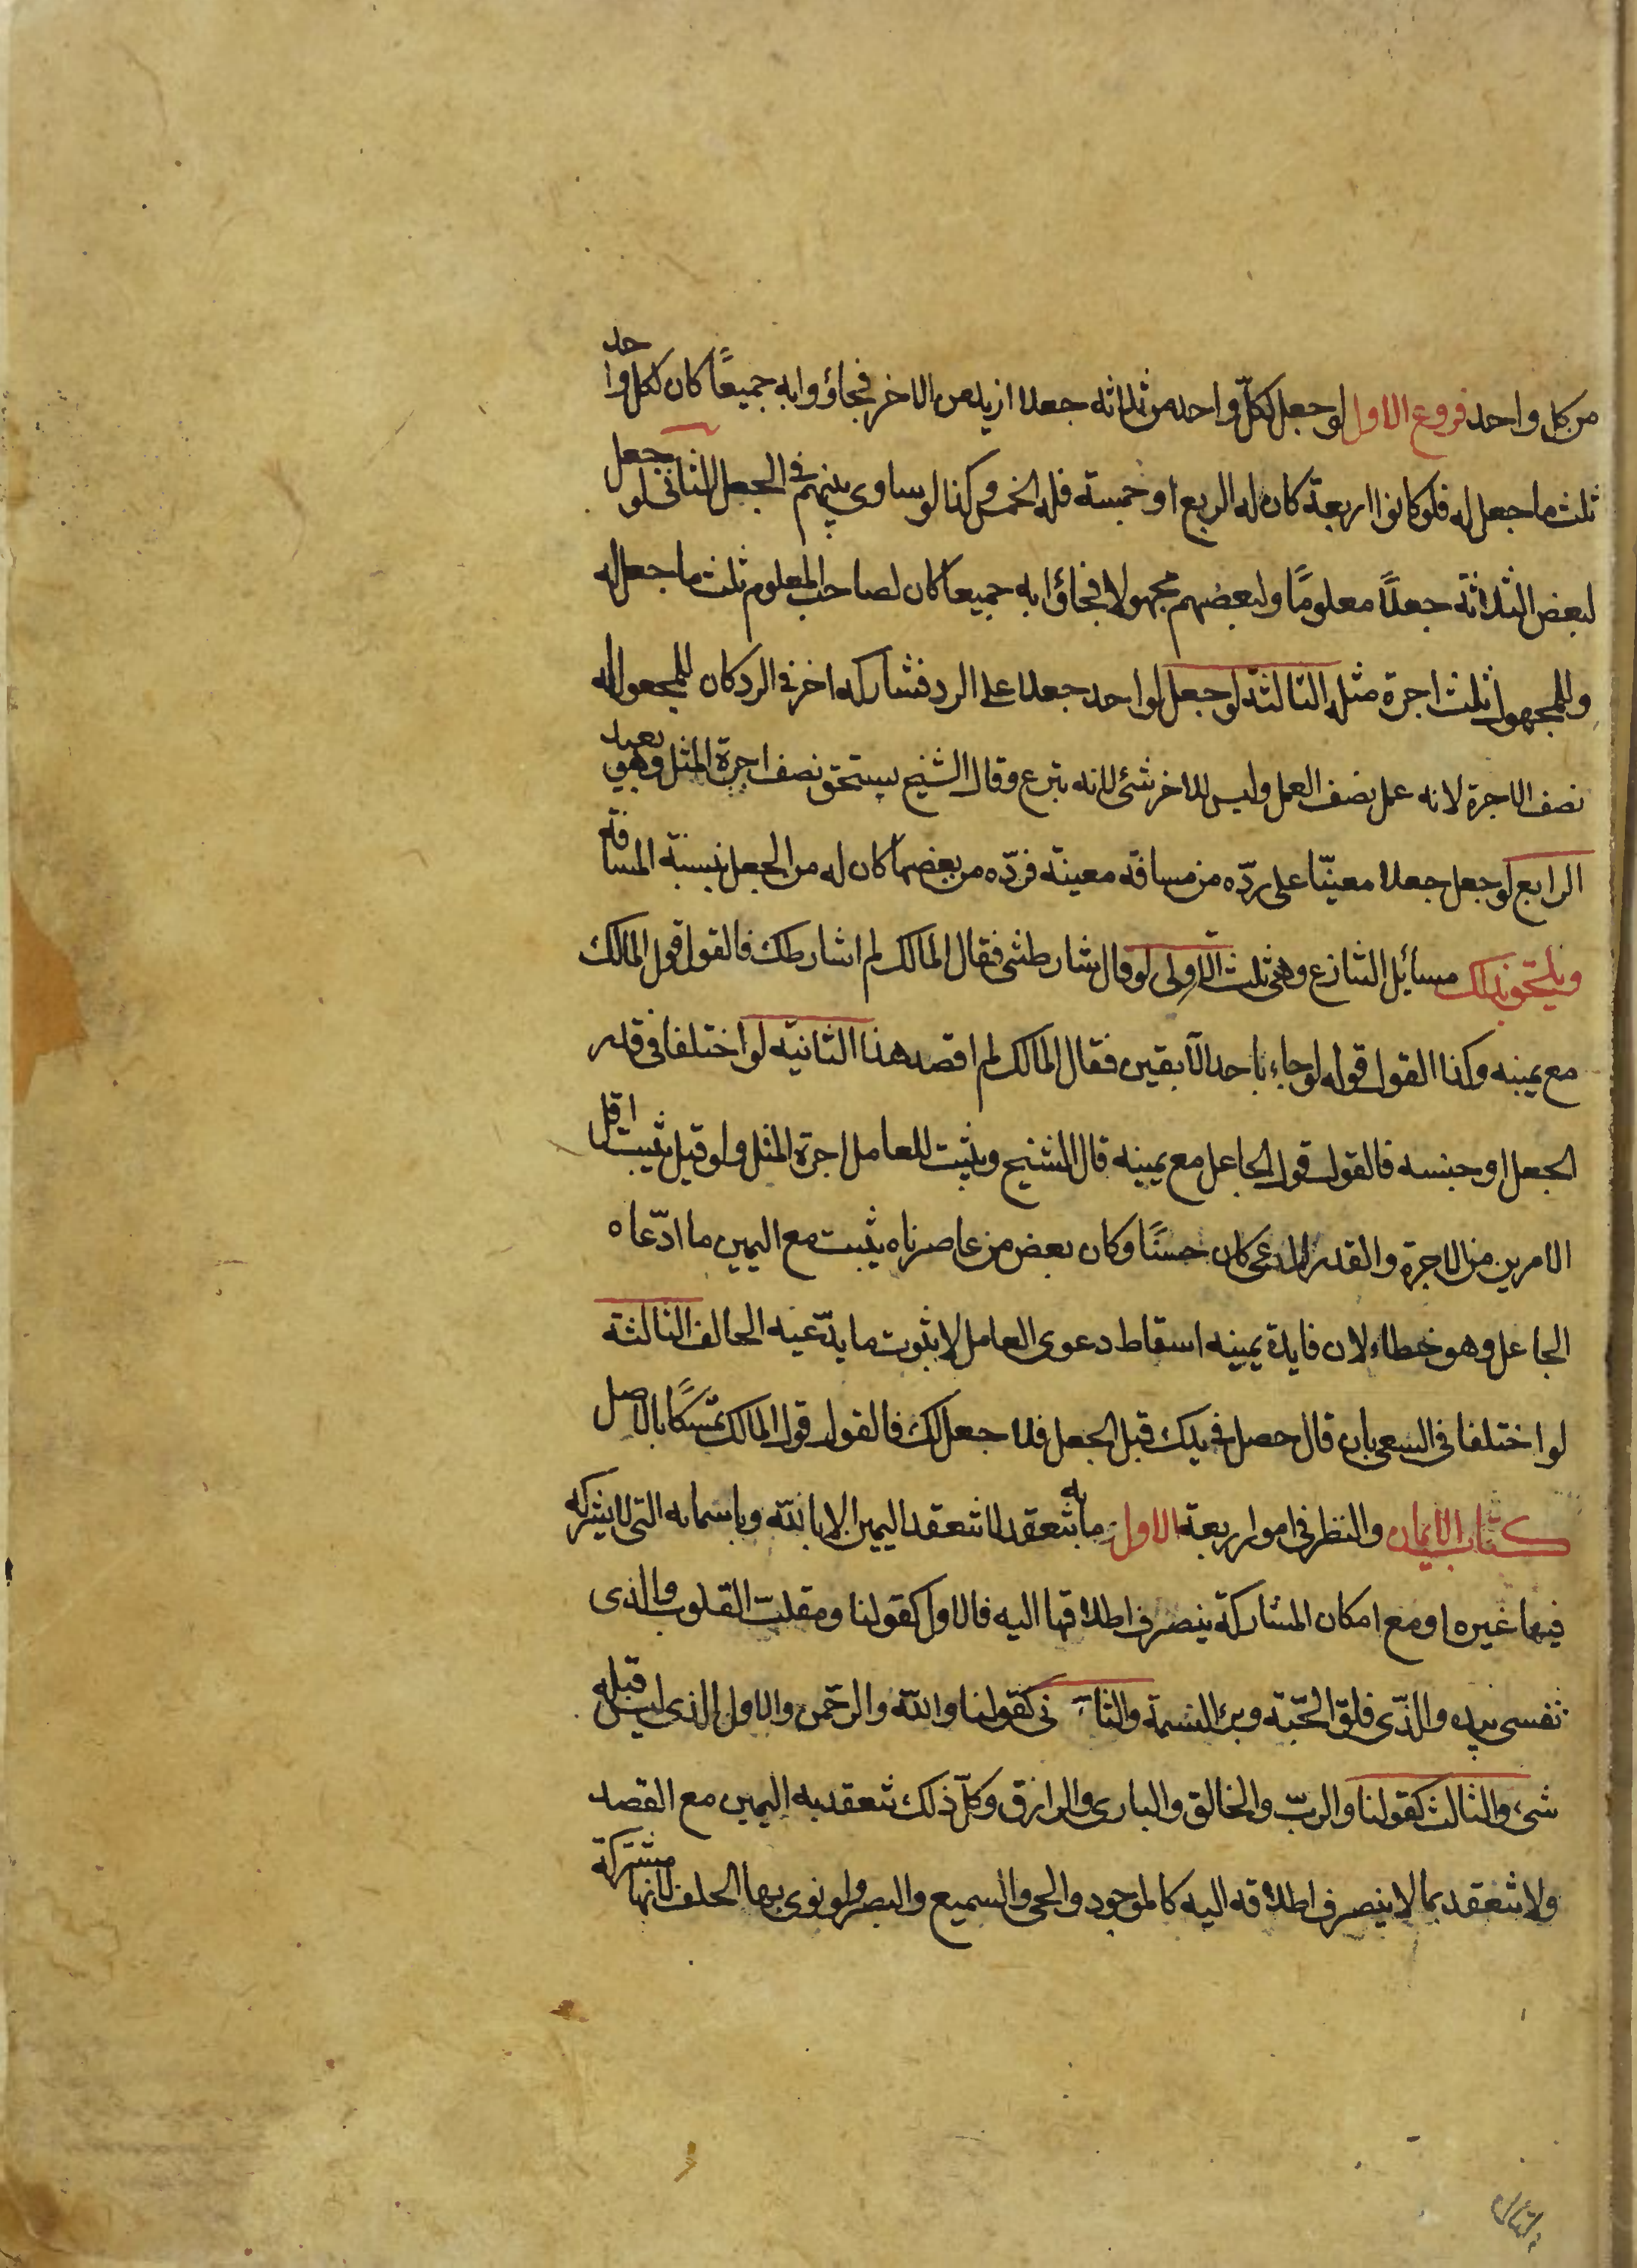 من كل واحد فروع الاول لو جعل لكلّ واحد من ثلاثه جعلا ازيد من الاخر فجاؤوا به جميعًا كان لكل واحد
ثلث ما جعل له فلو كانوا اربعة كان له الربع او خمسة فله الخمس وكذا لو ساوى بينهم في الجعل الثاني لو جعل
لبعض الثلاثة جعلاً معلومًا ولبعضهم مجهولا فجاؤا به جميعا كان لصاحب المعلوم ثلث ما جعل له
وللمجهول ثلث اجرة مثله الثالثة لو جعل لواحد جعلا على الرد فشاركه اخر في الرد كان للمجعول له
نصف الاجرة لانه عمل نصف العمل وليس للاخر شئ لانه تبرع وقال الشيخ يستحق نصف اجرة المثل وهو بعيد
الرابع لو جعل جعلا معينّا على ردّه من مسافة معينة فردّه من بعضها كان له من الجعل بنسبة المسافة
ويلحق بذلك مسائل التنازع وهي ثلث الاولى لو قال شارطتني فقال المالك لم اشارطك فالقول قول المالك
مع يمينه وكذا القول قوله لو جاء باحد الآبقين فقال المالك لم اقصد هذا الثانية لو اختلفا في قدر
الجعل او جنسه فالقول قول الجاعل مع يمينه قال الشيخ ويثبت للعامل اجرة المثل ولو قيل يثبت اقل
الامرين من الاجرة والقدر المدعى كان حسنًا وكان بعض من عاصرناه يثبت مع اليمين ما ادّعاه
الجاعل وهو خطاء لان فايدة يمينه اسقاط دعوى العامل لا ثبوت ما يدّعيه الحالف الثالثة
لو اختلفا في السعى بان قال حصل في يدك قبل الجعل فلا جعل لك فالقول قول المالك تمسّكًا بالاصل
كتاب الايمان والنظر في امور اربعة الاول ما به تنعقد لا تنعقد اليمين الا بالله وباسمائه التى لا يشركه
فيها غيره او مع امكان المشاركة ينصرف اطلاقها اليه فالاول كقولنا ومقلب القلوب والذى
نفسى بيده والذّى فلق الحبّة وبرئ النسمة والثانى كقولنا والله والرحمن والاول الذى ليس قبله
شىء والثالث كقولنا والربّ والخالق والبارى والرازق وكلّ ذلك تنعقد به اليمين مع القصد
ولا تنعقد بما لا ينصرف اطلاقه اليه كالموجود والحى والسميع والبصير ولو نوى بها الحلف لانها مشتركة